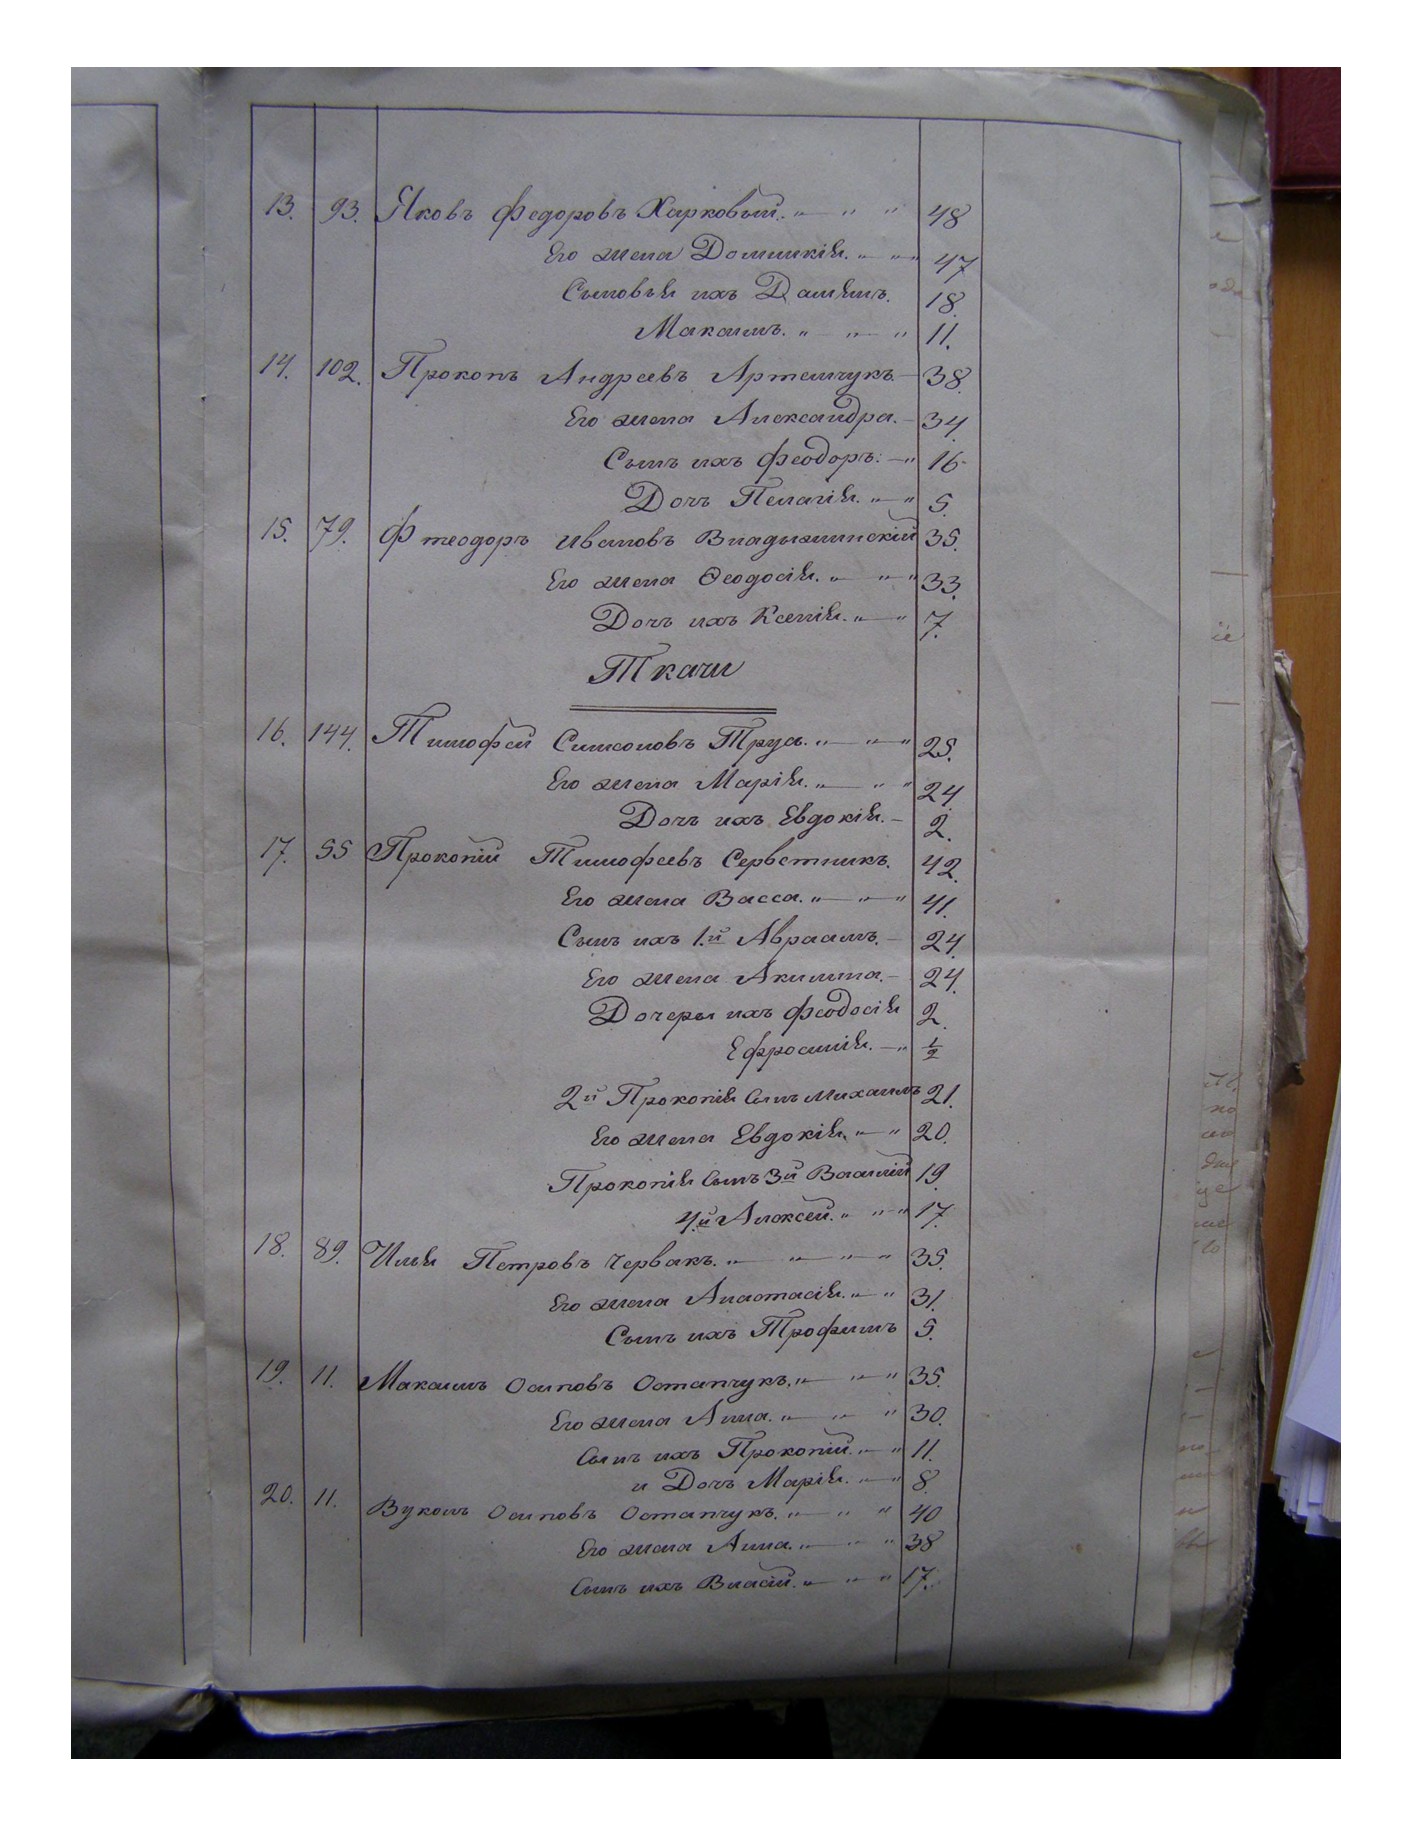 13. 93. Яковъ Федоровъ Харковый. „ — „ „ 48
Его жена Домникія. „ — „ „ 47
Сыновья ихъ Даніилъ. 18.
Максимъ. „ — „ — „ 11.
14. 102. Прокопъ Андреевъ Артемчукъ. — 38.
Его жена Александра. — 34.
Сынъ ихъ Феодоръ. — „ 16
Дочь Пелагія. „ — „ 5.
15. 79. Фтеодоръ Ивановъ Владыжинскій 35.
Его жена Ѳеодосія. „ — „ — „ 33.
Дочь ихъ Ксенія. „ — „ 7.
Ткачи
16. 144. Тимофей Симсоновъ Трусъ. „ — „ — „ 25.
Его жена Марія. „ — „ „ 24
Дочь ихъ Евдокія. — 2.
17. 55 Прокопій Тимофеевъ Серветникъ. 42.
Его жена Васса. „ — „ — „ 41.
Сынъ ихъ 1.й Авраамъ. — 24.
Его жена Акилина. — 24.
Дочеры ихъ Феодосія 2.
Ефросинія. — „ ½
2й Прокопія Сынъ Михаилъ 21.
Его жена Евдокія. „ — „ 20.
Прокопія Сынъ 3й Василій 19.
4.й Алексей. „ „ — „ 17.
18. 89. Илья Петровъ Червакъ. „ — „ — „ — „ 35.
Его жена Анастасія. „ — „ 31.
Сынъ ихъ Трофимъ 5.
19. 11. Максимъ Осиповъ Остапчукъ. „ — „ — „ 35.
Его жена Анна. „ — „ — „ 30.
Сынъ ихъ Прокопій. „ — „ 11.
и Дочь Марія. „ — „ 8.
20. 11. Вуколъ Осиповъ Остапчукъ. „ — „ — „ 40
Его жена Анна. „ — „ „ 38
Сынъ ихъ Власій. „ — „ — „ 17.